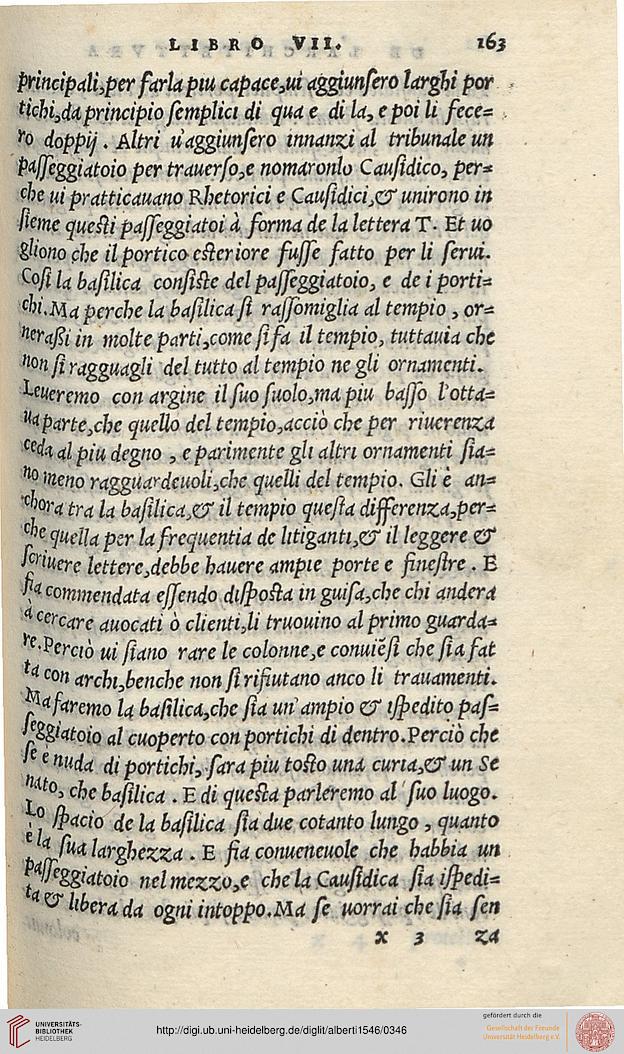 LIBRO VII. 163
principali,per farla piu capace,ui aggiunsero larghi por
tichi,da principio semplici di qua e di la, e poi li fece=
ro doppij. Altri u'aggiunsero innanzi al tribunale un
passeggiatoio per trauerso,e nomaronlo Causidico, per=
che ui pratticauano Rhetorici e Causidici,& unirono in
sieme questi passeggiatoi à forma de la lettera T. Et uo
gliono che il portico esteriore fusse fatto per li serui.
Cosi la basilica consiste del passeggiatoio, e de i porti=
chi.Ma perche la basilica si rassomiglia al tempio, or=
nerassi in molte parti,come si fa il tempio, tuttauia che
non si ragguagli del tutto al tempio ne gli ornamenti.
Leueremo con argine il suo suolo,ma piu basso l'otta=
ua parte,che quello del tempio,acciò che per riuerenza
ceda al piu degno, e parimente gli altri ornamenti sia=
no meno ragguardeuoli,che quelli del tempio. Gli è an=
chora tra la basilica,& il tempio questa differenza,per=
che quella per la frequentia de litiganti,& il leggere &
scriuere lettere,debbe hauere ampie porte e finestre. E
fia commendata essendo disposta in guisa,che chi andera
à cercare auocati ò clienti,li truouino al primo guarda=
re.Perciò ui siano rare le colonne,e conuiēsi che sia fat
ta con archi,benche non si rifiutano anco li trauamenti.
Ma faremo la basilica,che sia un' ampio & ispedito pas=
seggiatoio al cuoperto con portichi di dentro.Perciò che
se e nuda di portichi, sara piu tosto una curia,& un Se
nato, che basilica. E di questa parleremo al suo luogo.
Lo spacio de la basilica sia due cotanto lungo, quanto
è la sua larghezza. E fia conueneuole che habbia un
passeggiatoio nel mezzo,e che la Causidica sia ispedi=
ta & libera da ogni intoppo.Ma se uorrai che sia sen
x 3 za
UNIVERSITÄTS-
BIBLIOTHEK
HEIDELBERG
http://digi.ub.uni-heidelberg.de/diglit/alberti1546/0346
gefördert durch die
Gesellschaft der Freunde
Universität Heidelberg e.V.